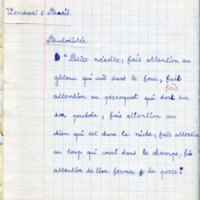 Vendredi 6 Avril
Autodictée
" Petite noiselle, fais attention au
gâteau qui cuit dans le four, fait
fais
attention au perroquet qui dort sur
son perchoir, fais attention au
chien qui est dans la niche, fais attention
au loup qui court dans les champs, fais
attention de bien fermer la porte!